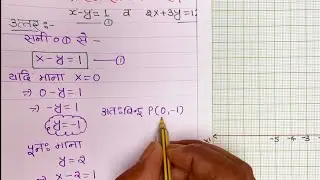 x-y=1 व 2x+3y=12
① 
उत्तर:-
सनी० ① से -
x-y=1 ①
यदि माना x=0
⇒ 0-y=1
⇒ -y=1
y=-1
अतः बिन्दु P(0,-1)
पुनः माना
y=2
⇒ x-2=1
-5 -4 -3 -2